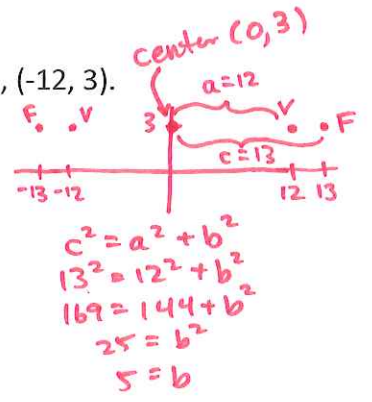 center (0,3)
, (-12, 3).
a=12
F V 3 V F
c=13
-13 -12 12 13
c² = a² + b²
13² = 12² + b²
169 = 144 + b²
25 = b²
5 = b